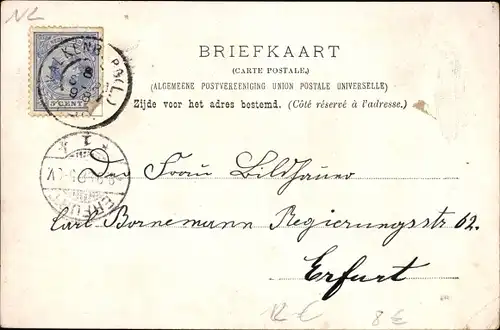 NL
VALKENBURG (L.)
5 CENT
BRIEFKAART
(CARTE POSTALE.)
(ALGEMEENE POSTVEREENIGING UNION POSTALE UNIVERSELLE)
Zijde voor het adres bestemd. (Côté réservé à l'adresse.)
ERFURT
Der Frau Bildhauer
Carl Bornemann Regierungsstr 62.
Erfurt
12 € 8 €